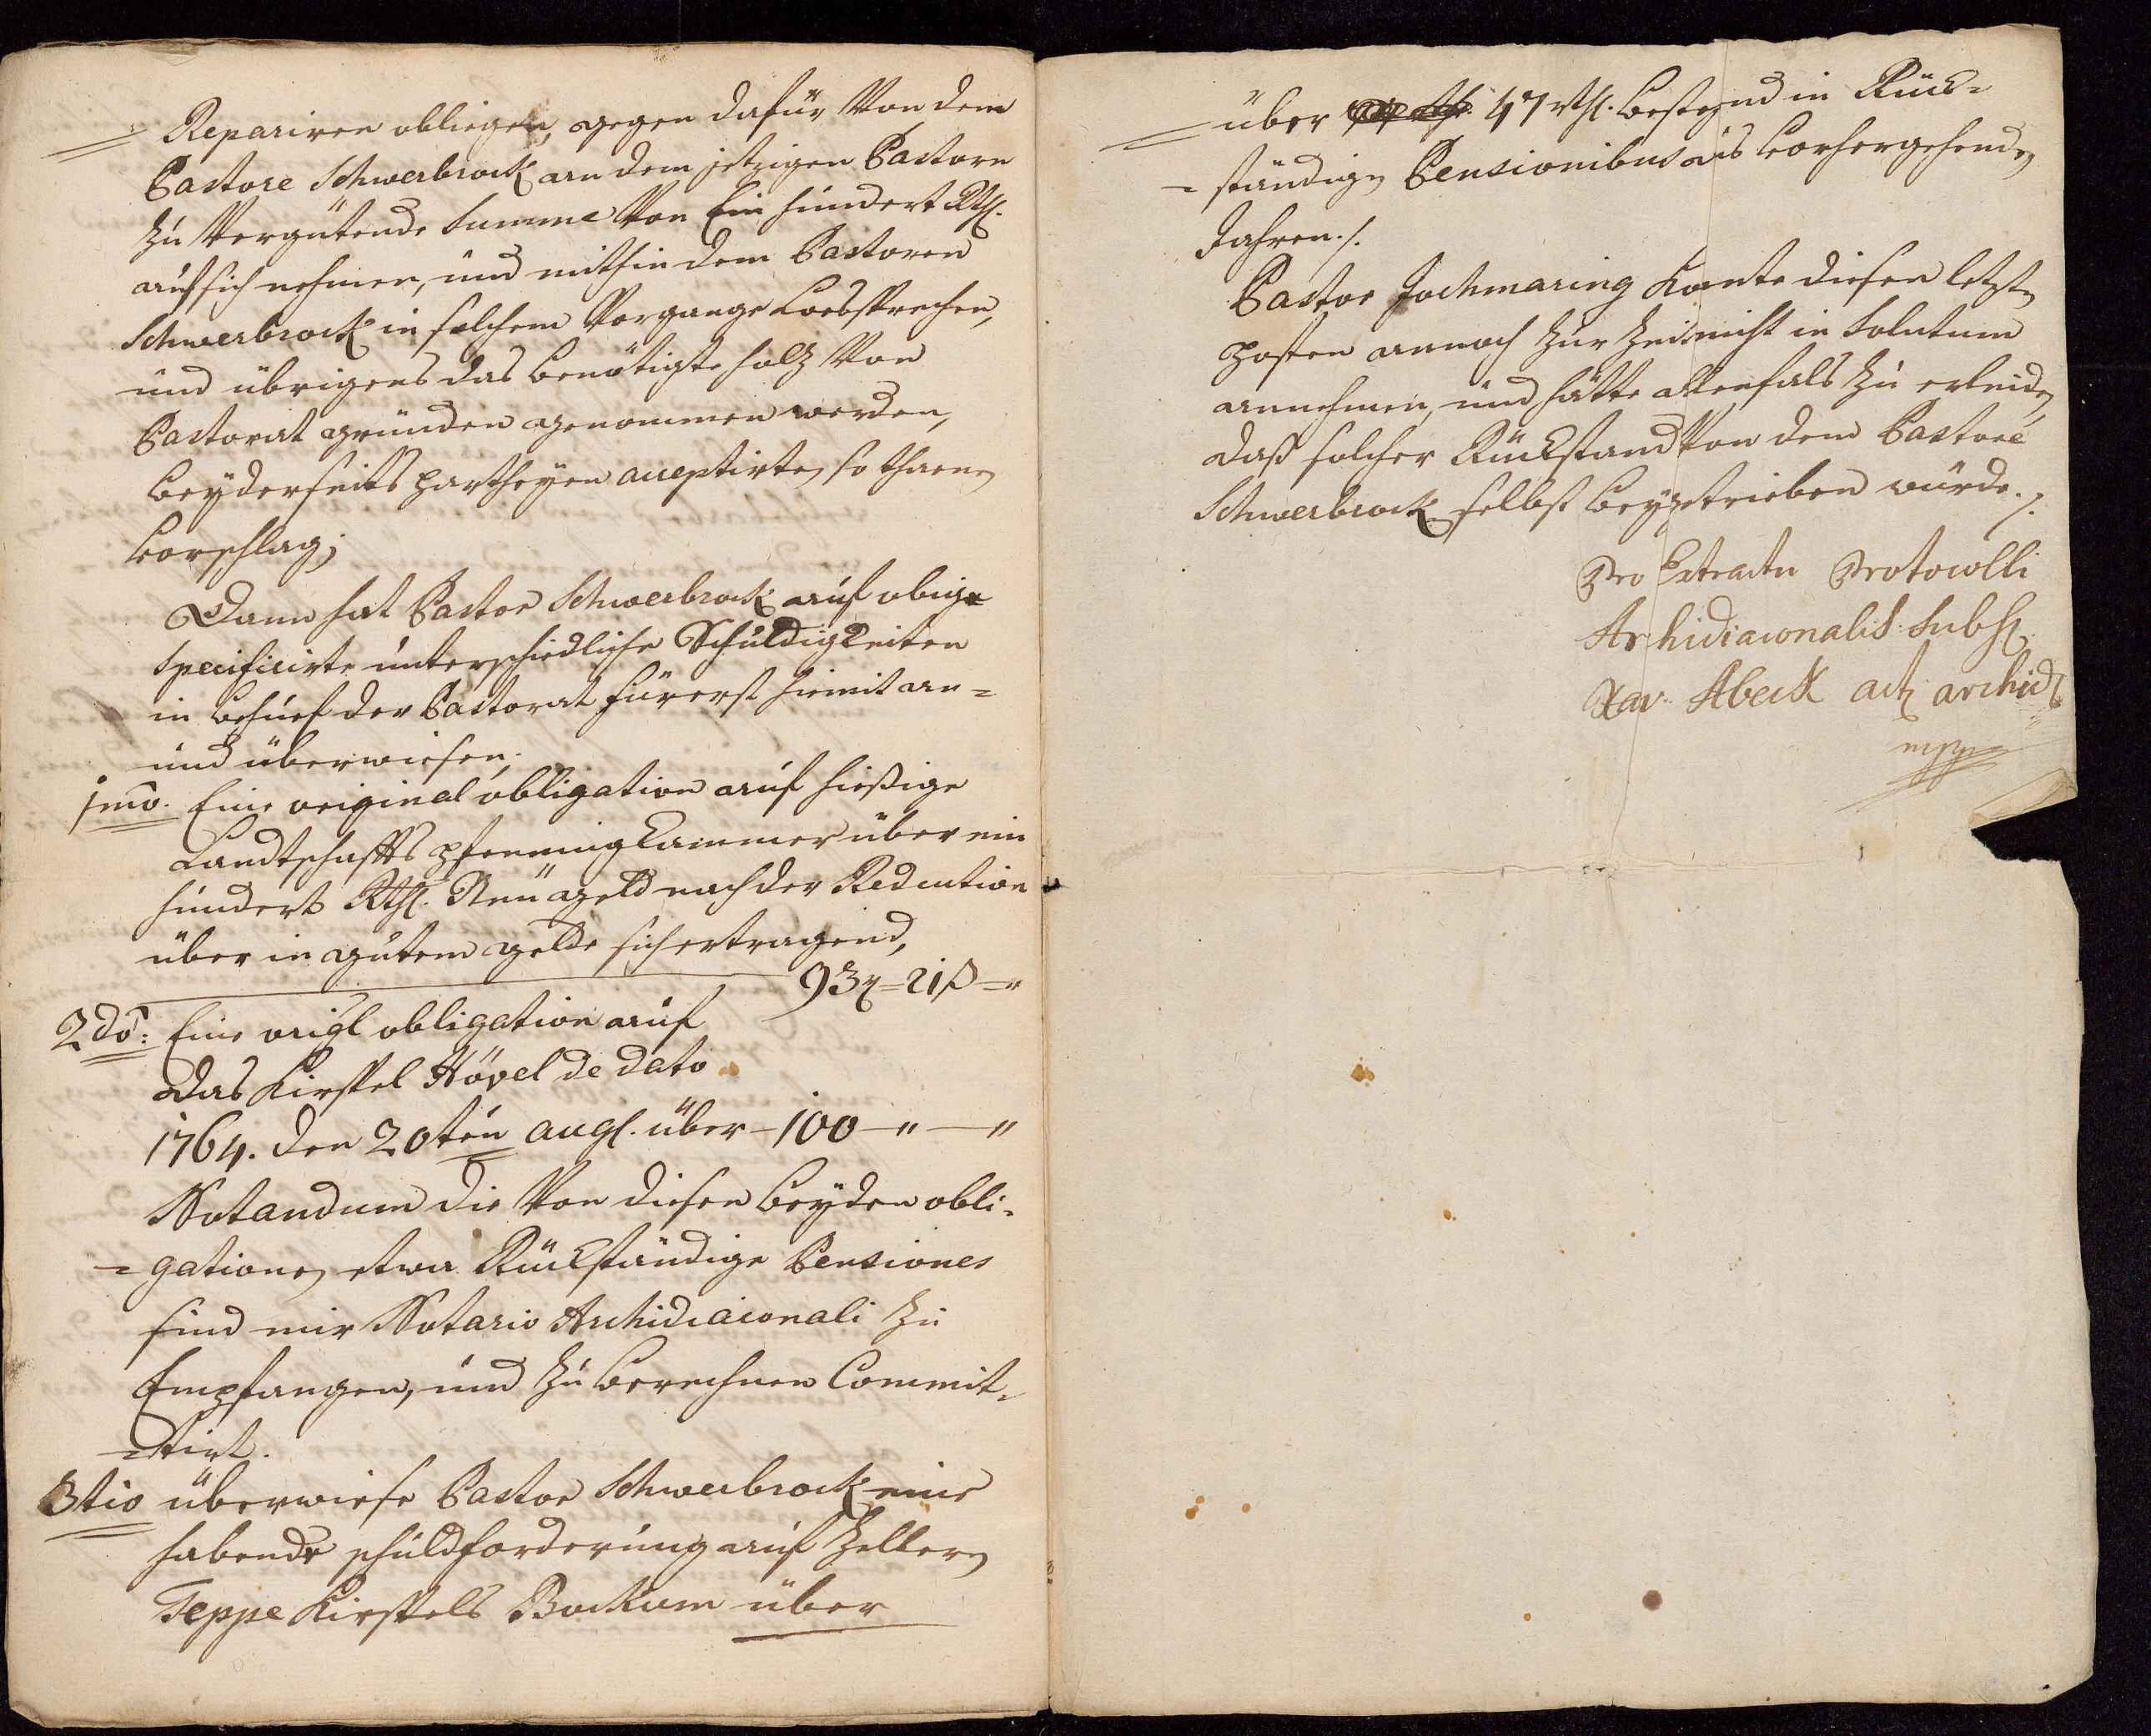 Repariren obliegen, gegen dafür Von dem
Pastore Schwerbrock an dem jetzigen Pastorn
zu Vergütende Summe Von Ein hundert Rthl.
auf sich nehmen, und mithin dem Pastoren
Schwerbrock in solchem Vorgange Losssprechen,
und übrigens das benötigte holtz Von
Pastorat gründen genommen werden,
beyderseits partheyen acceptirten so thanen
vorschlag;
Dann hat Pastor Schwerbrock auf obige
specificirte unterschiedliche Schuldigkeiten
in behuef der Pastorat fürerst hiemit an-
und überwiesen;
1mo. Eine original obligation auf hießige
Landtschaffts pfenningkammer über ein
hundert Rthl. Neu geld nach der Reduction
über in gutem gelde sich ertragend,
93 = 21 ß = "
2do: Eine origl obligation auf
das Kirspel Hövel de dato
1764. den 20ten augl. über - 100 - " - "
Notandum die Von diesen beyden obli-
= gationen etwa Rückständige Pensiones
sind mir Notario Archidiaconali zu
Empfangen, und zu berechnen Commit-
= tirt.
3tio überwiese Pastor Schwerbrock eine
habende schuldforderung auf Zelleren
Teppe Kirspels Bockum über
über 47 rthl. bestehend in Rück-
= ständigen Pensionibus aus vorhergehenden
Jahren ./.
Pastor Jochmaring konte diesen letzten
posten annoch zur Zeit nicht in Solutum
annehmen, und hätte allenfals zu erleiden,
daß solcher Rückstand Von dem Pastore
Schwerbrock selbst beygetrieben würde ./.
Pro Extractu Protocolli
Archidiaconalis Subs.
Xav. Abeck act. archid.
mpp